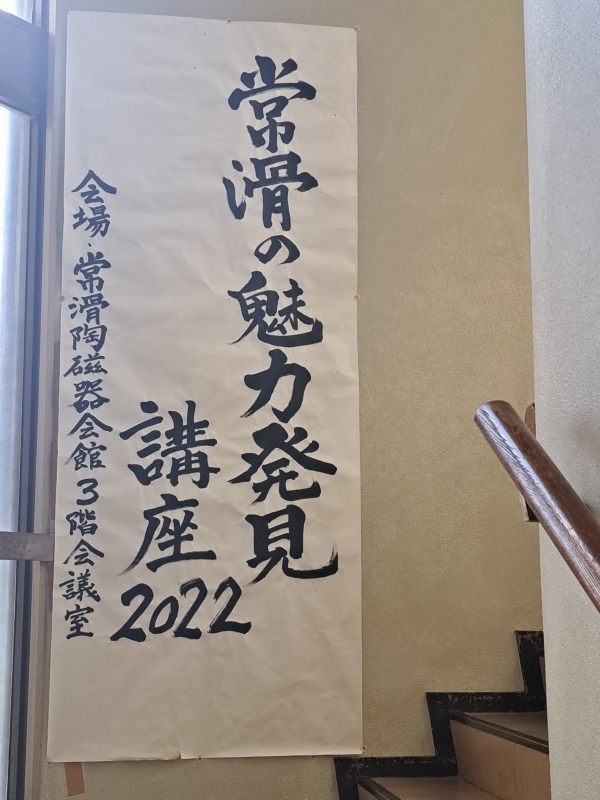 常滑の魅力発見
講座2022
会場・常滑陶磁器会館3階会議室